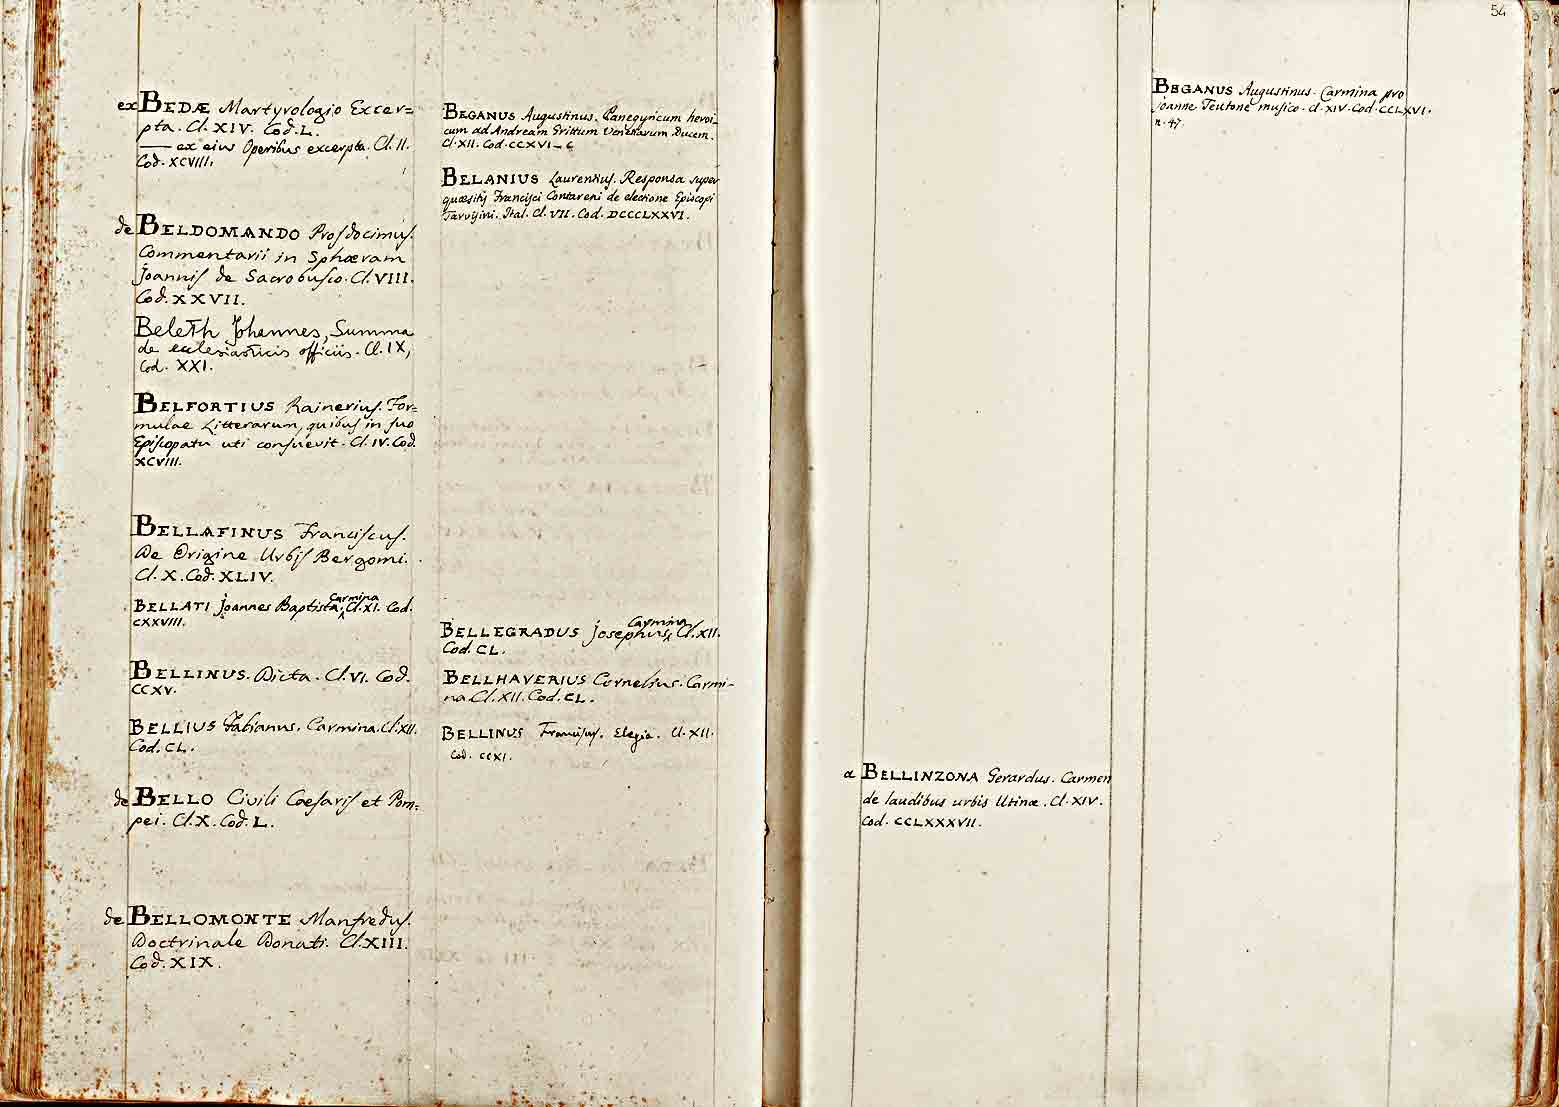 ex BEDÆ Martyrologio Excer=
pta. Cl. XIV. Cod. L.
— ex eius Operibus excerpta. Cl. II.
Cod. XCVIII.
de BELDOMANDO Prosdocimus.
Commentarii in Sphæram
Joannis de Sacrobusco. Cl. VIII.
Cod. XXVII.
Beleth Johannes, Summa
de ecclesiasticis officiis. Cl. IX,
Cod. XXI.
BELFORTIUS Rainerius. For=
mulae Litterarum, quibus in suo
Episcopatu uti consuevit. Cl. IV. Cod.
XCVIII.
BELLAFINUS Franciscus.
De Origine Urbis Bergomi.
Cl. X. Cod. XLIV.
BELLATI Joannes Baptista. Carmina Cl. XI. Cod.
CXXVIII.
BELLINUS. Dicta. Cl. VI. Cod.
CCXV.
BELLIUS Fabianus. Carmina. Cl. XII.
Cod. CL.
de BELLO Civili Caesaris et Pom=
pei. Cl. X. Cod. L.
de BELLOMONTE Manfredus.
Doctrinale Donati. Cl. XIII.
Cod. XIX.
BEGANUS Augustinus. Panegyricum heroi_
cum ad Andream Grittum Venetiarum Ducem.
Cl. XII. Cod. CCXVI_
BELANIUS Laurentius. Responsa super
quæsitis Francisci Contareni de electione Episcopi
Tarvisini. Ital. Cl. VII. Cod. DCCCLXXVI.
BELLEGRADUS Josephus. Carmina Cl. XII.
Cod. CL.
BELLHAVERIUS Cornelius. Carmi-
na. Cl. XII. Cod. CL.
BELLINUS Franciscus. Elegia. Cl. XII.
Cod. CCXI.
54
BEGANUS Augustinus. Carmina pro
Joanne Teutone musico. Cl. XIV. Cod. CCLXVI.
n. 47.
a BELLINZONA Gerardus. Carmen
de laudibus urbis Utinæ. Cl. XIV.
Cod. CCLXXXVII.